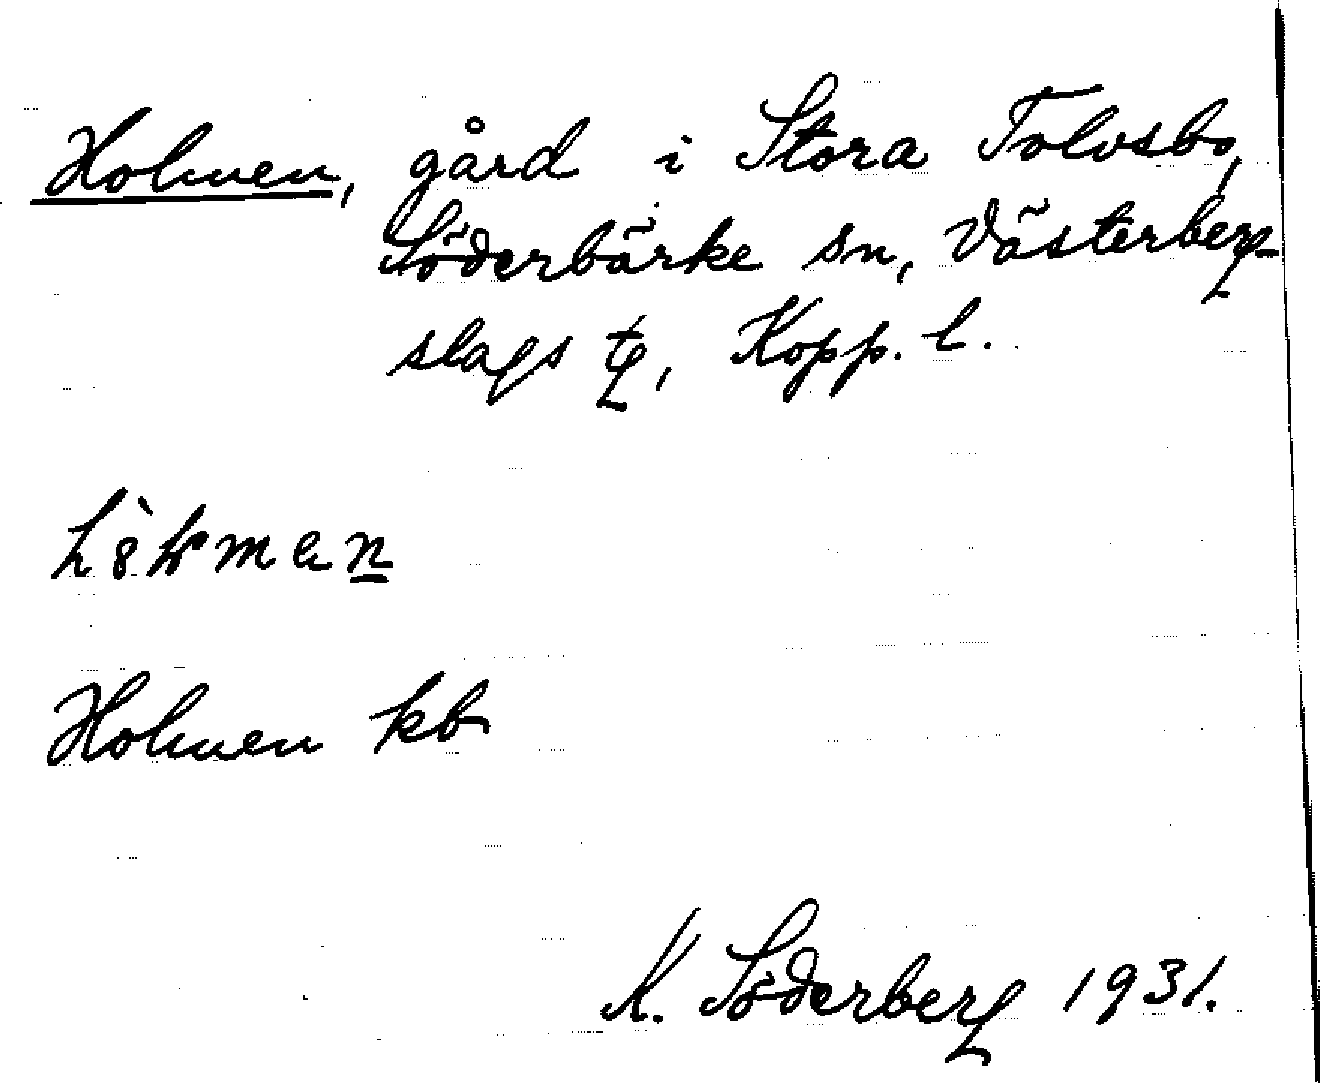 Holmen, gård i Stora Tolvsbo,
Söderbärke sn, Västerbergs-
slags tg, Kopp. l.
Holmen kb
K. Söderberg 1931.